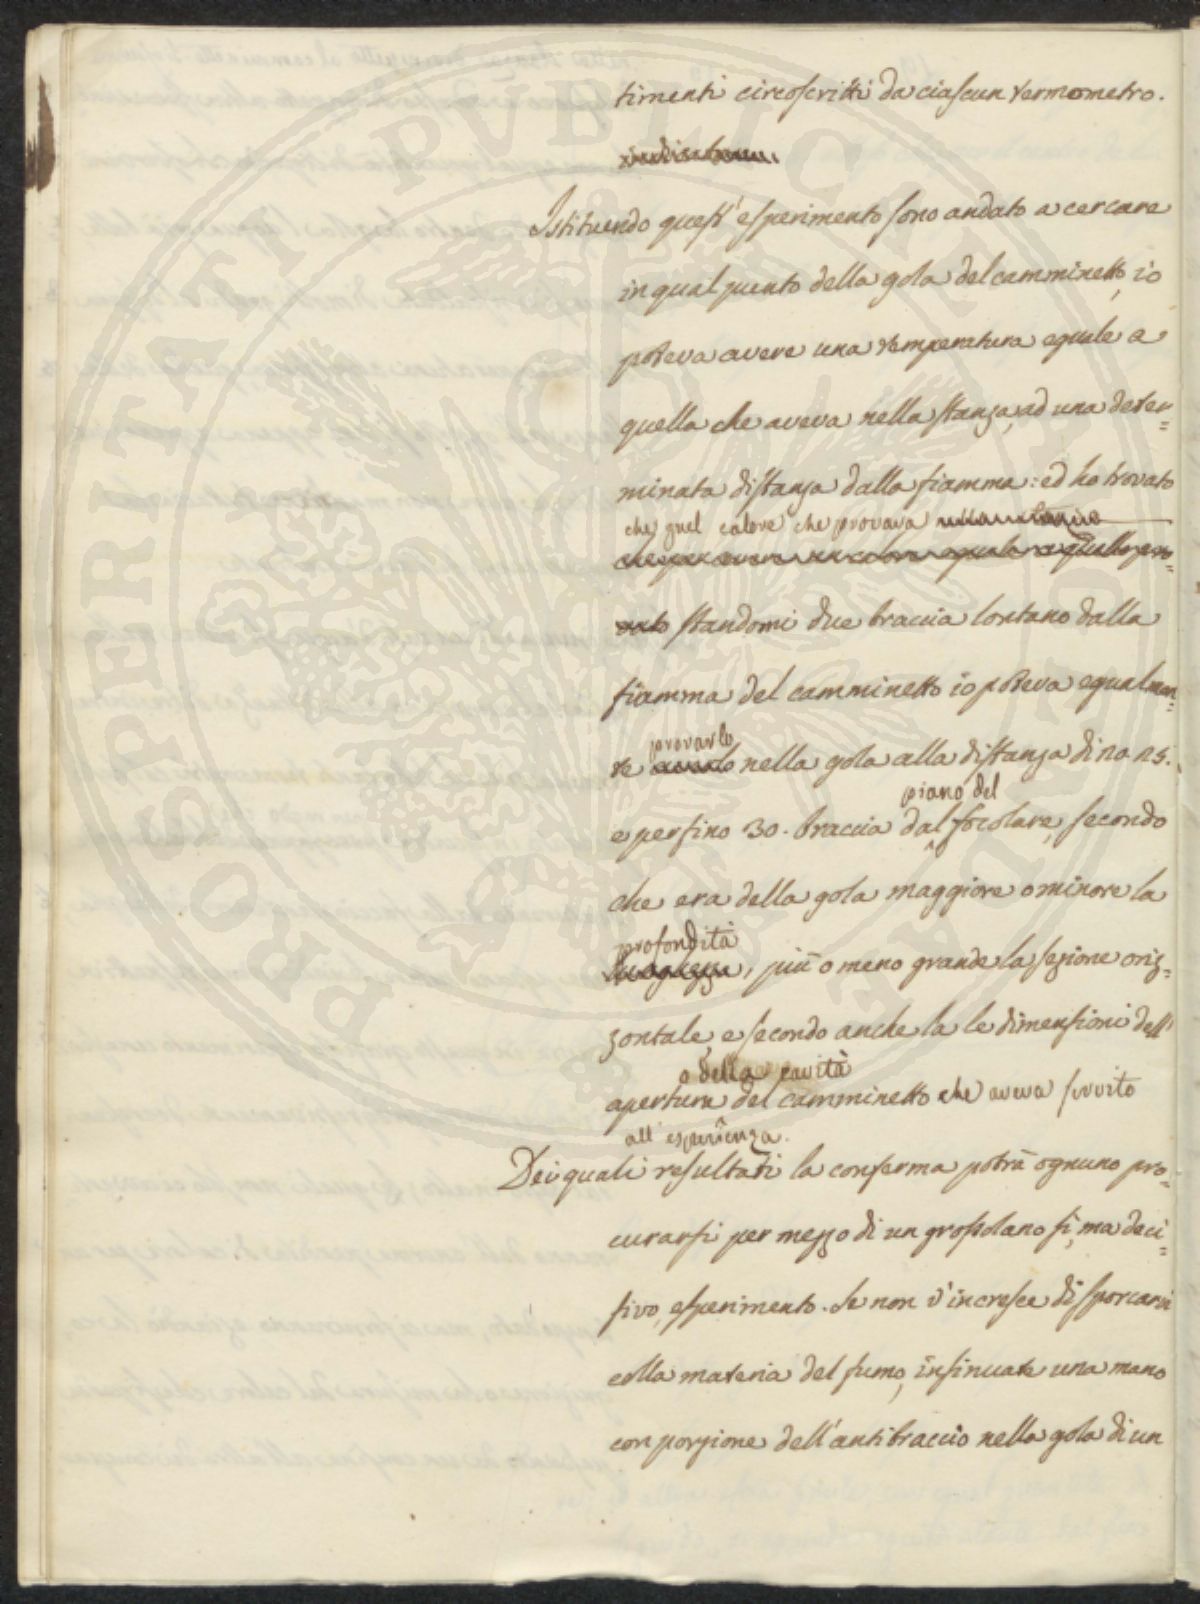 timenti circoscritti da ciascun termometro.
Istituendo quest'esperimento sono andato a cercare
in qual punto della gola del camminetto, io
poteva avere una temperatura eguale a
quella che aveva nella stanza, ad una deter=
minata distanza dalla fiamma: ed ho trovato
che quel calore che provava
che per avere un calore eguale a quello pro=
vato standomi due braccia lontano dalla
fiamma del camminetto io poteva egualmen=
provarlo
te averlo nella gola alla distanza di 20 25.
piano del
e perfino 30. braccia dal focolare, secondo
che era della gola maggiore o minore la
profondità
lunghezza, più o meno grande la sezione oriz=
zontale, e secondo anche la le dimensioni dell'
o della cavità
apertura del camminetto che aveva servito
all'esperienza.
Dei quali resultati la conferma potrà ognuno pro=
curarsi per mezzo di un grossolano sì, ma deci=
sivo, esperimento. Se non v'incresce di sporcarvi
colla materia del fumo, insinuate una mano
con porzione dell'antibraccio nella gola di un
PROSPERITATI PVBLICAE AVGENDAE